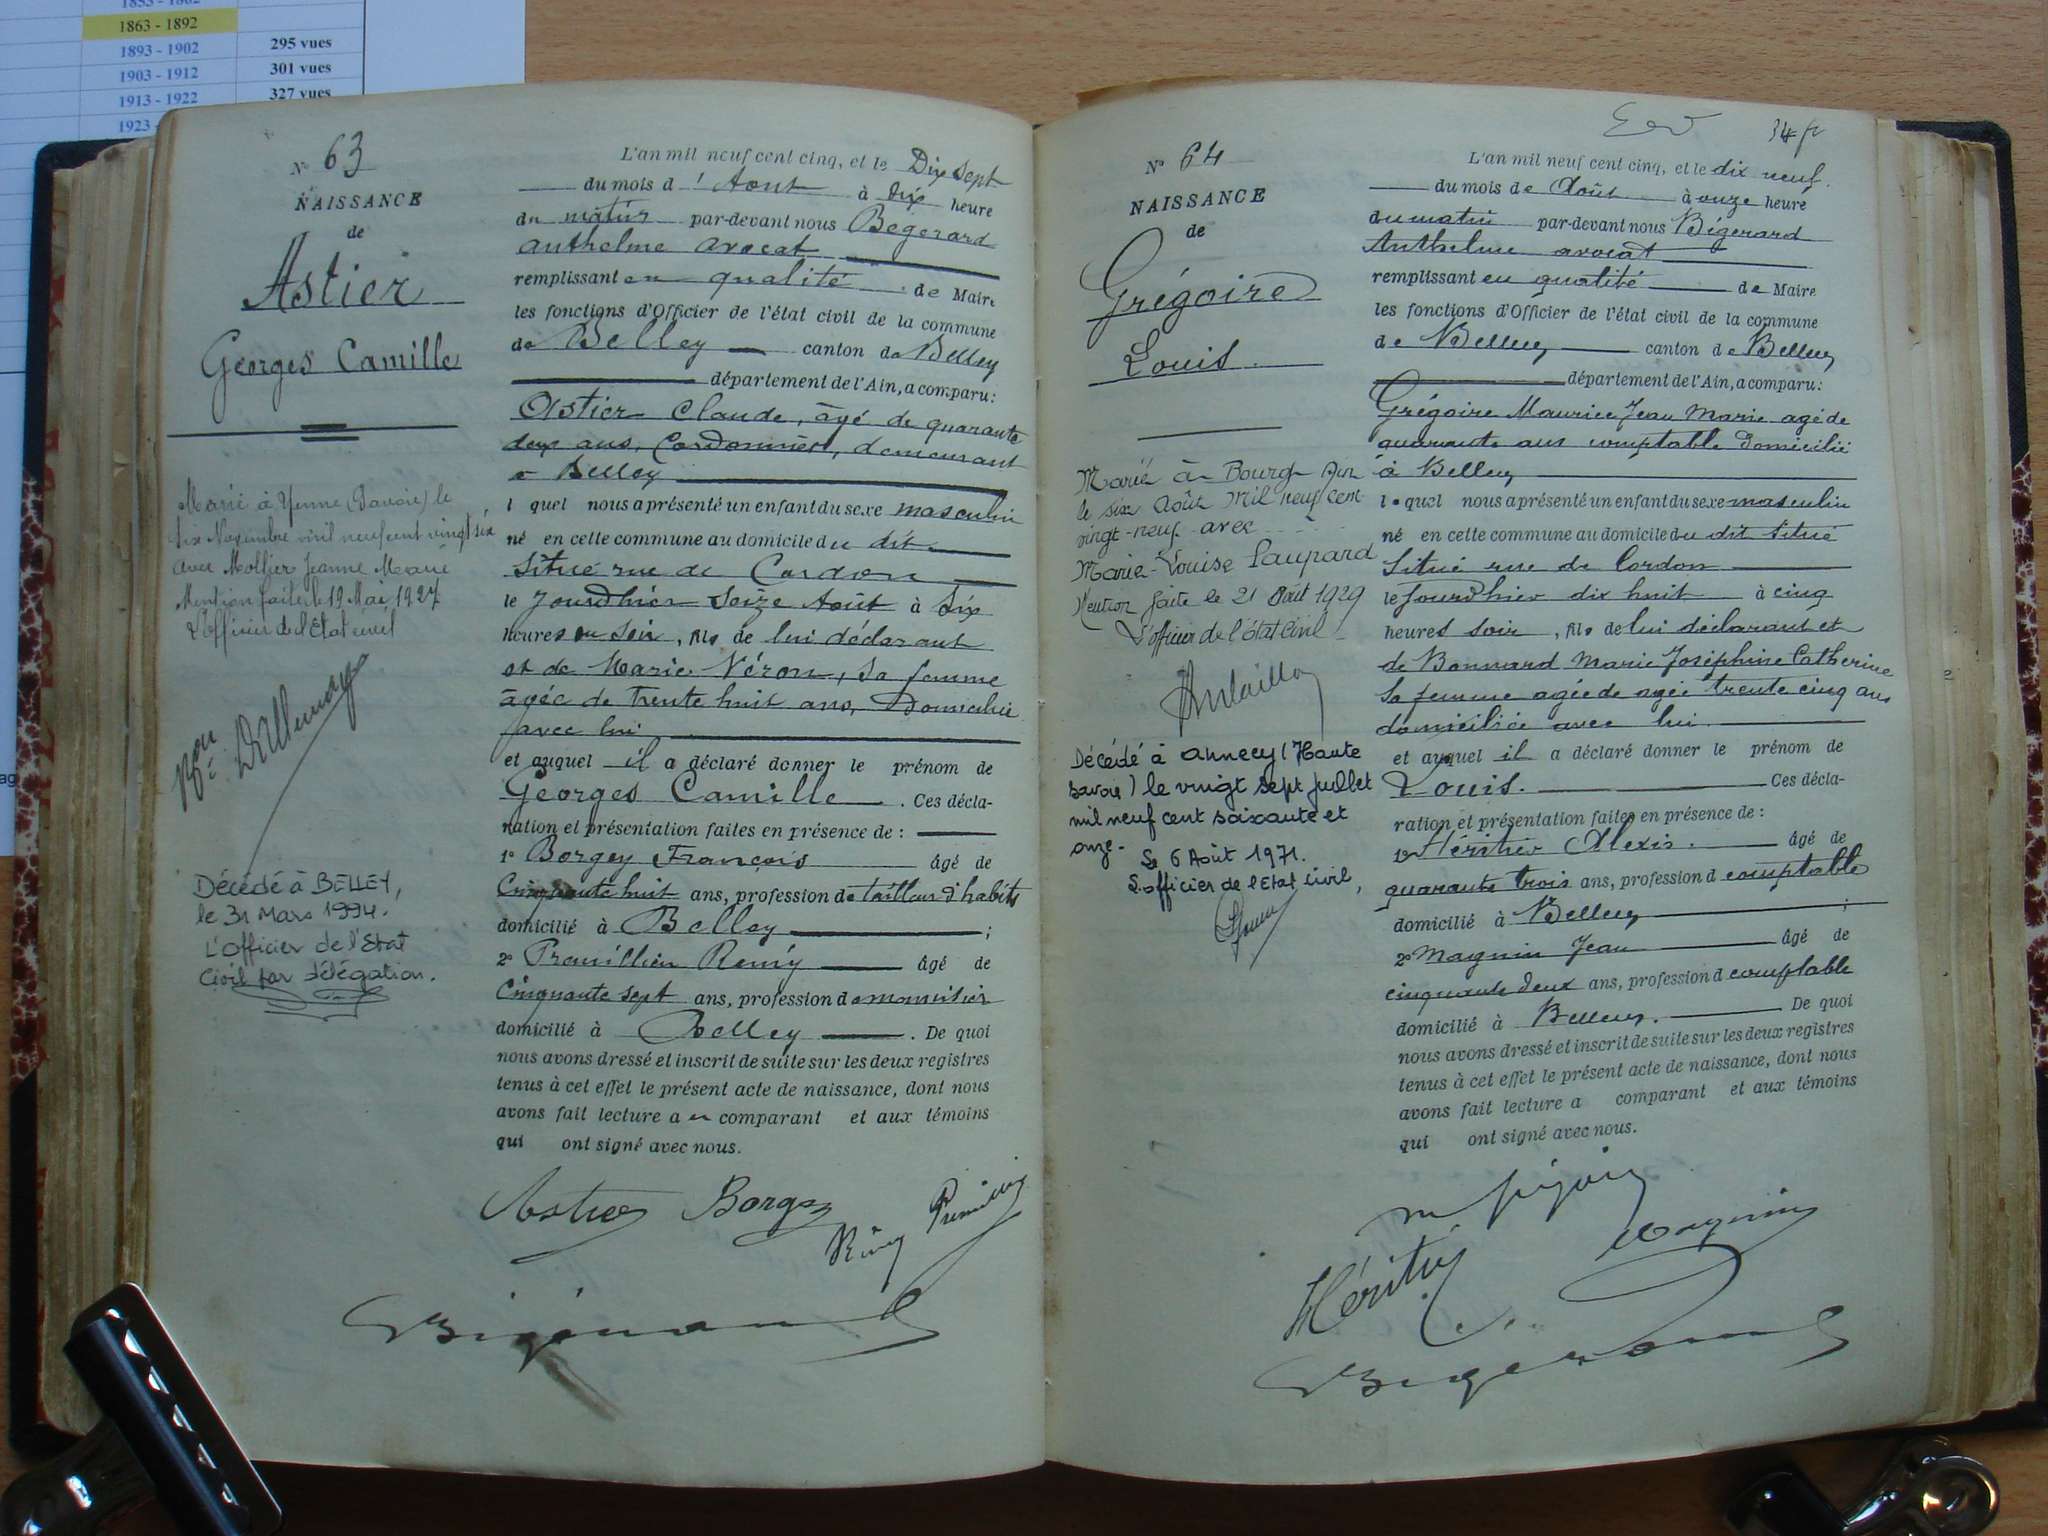 1863 - 1892
1893 - 1902 295 vues
1903 - 1912 301 vues
1913 - 1922 327 vues
1923 -
N° 63
NAISSANCE
de
Astier
Georges Camille
Marié à Yenne (Savoie) le
six Novembre mil neuf cent vingt six
avec Mollier Jeanne Marie
Mention faite le 19 Mai 1927
L'officier de l'Etat civil
Décédé à BELLEY,
le 31 Mars 1994.
L'Officier de l'Etat
Civil par délégation.
L'an mil neuf cent cinq, et le Dix sept
du mois d'Aout à dix heure
du matin par-devant nous Bégerard
Anthelme avocat
remplissant en qualité de Maire
les fonctions d'Officier de l'état civil de la commune
de Belley canton de Belley
département de l'Ain, a comparu :
Astier Claude, âgé de quarante
deux ans, Cordonnier, demeurant
a Belley
l quel nous a présenté un enfant du sexe masculin
né en cette commune au domicile du dit
situé rue de Cordon
le Jourdhier Seize Aout à Six
heures du soir, fils de lui déclarant
et de Marie Véron, sa femme
âgée de trente huit ans, Domiciliée
avec lui
et auquel il a déclaré donner le prénom de
Georges Camille. Ces décla-
ration et présentation faites en présence de :
1° Borgey François âgé de
Cinquante huit ans, profession de tailleur d'habits
domicilié à Belley ;
2° Rémy âgé de
Cinquante sept ans, profession de
domicilié à Belley. De quoi
nous avons dressé et inscrit de suite sur les deux registres
tenus à cet effet le présent acte de naissance, dont nous
avons fait lecture a u comparant et aux témoins
qui ont signé avec nous.
Astier Borgey
Rémy
Bigérard
34 fr
N° 64
NAISSANCE
de
Grégoire
Louis
Marié à Bourg Ain
le six Août Mil neuf cent
vingt-neuf avec
Marie-Louise Paupard
Mention faite le 21 Août 1929
L'officier de l'état civil
Décédé à Annecy (Haute
Savoie) le vingt sept juillet
mil neuf cent soixante et
onze.
Le 6 Août 1971.
L'officier de l'Etat Civil,
L'an mil neuf cent cinq, et le dix neuf
du mois de Août à onze heure
du matin par-devant nous Bigerard
Anthelme avocat
remplissant en qualité de Maire
les fonctions d'Officier de l'état civil de la commune
de Belley canton de Belley
département de l'Ain, a comparu :
Grégoire Maurice Jean Marie agé de
quarante ans comptable domicilié
à Belley
l e quel nous a présenté un enfant du sexe masculin
né en cette commune au domicile du dit situé
situé rue de Cordon
le Jourdhier dix huit à cinq
heures soir, fils de lui déclarant et
de Bonnard Marie Joséphine Catherine
sa femme agée de agée trente cinq ans
domiciliée avec lui
et auquel il a déclaré donner le prénom de
Louis. Ces décla-
ration et présentation faites en présence de :
1° Héritier Alexis. âgé de
quarante trois ans, profession d comptable
domicilié à Belley ;
2° Magnin Jean âgé de
cinquante deux ans, profession d comptable
domicilié à Belley. De quoi
nous avons dressé et inscrit de suite sur les deux registres
tenus à cet effet le présent acte de naissance, dont nous
avons fait lecture a comparant et aux témoins
qui ont signé avec nous.
Magnin
Héritier
Bigerard